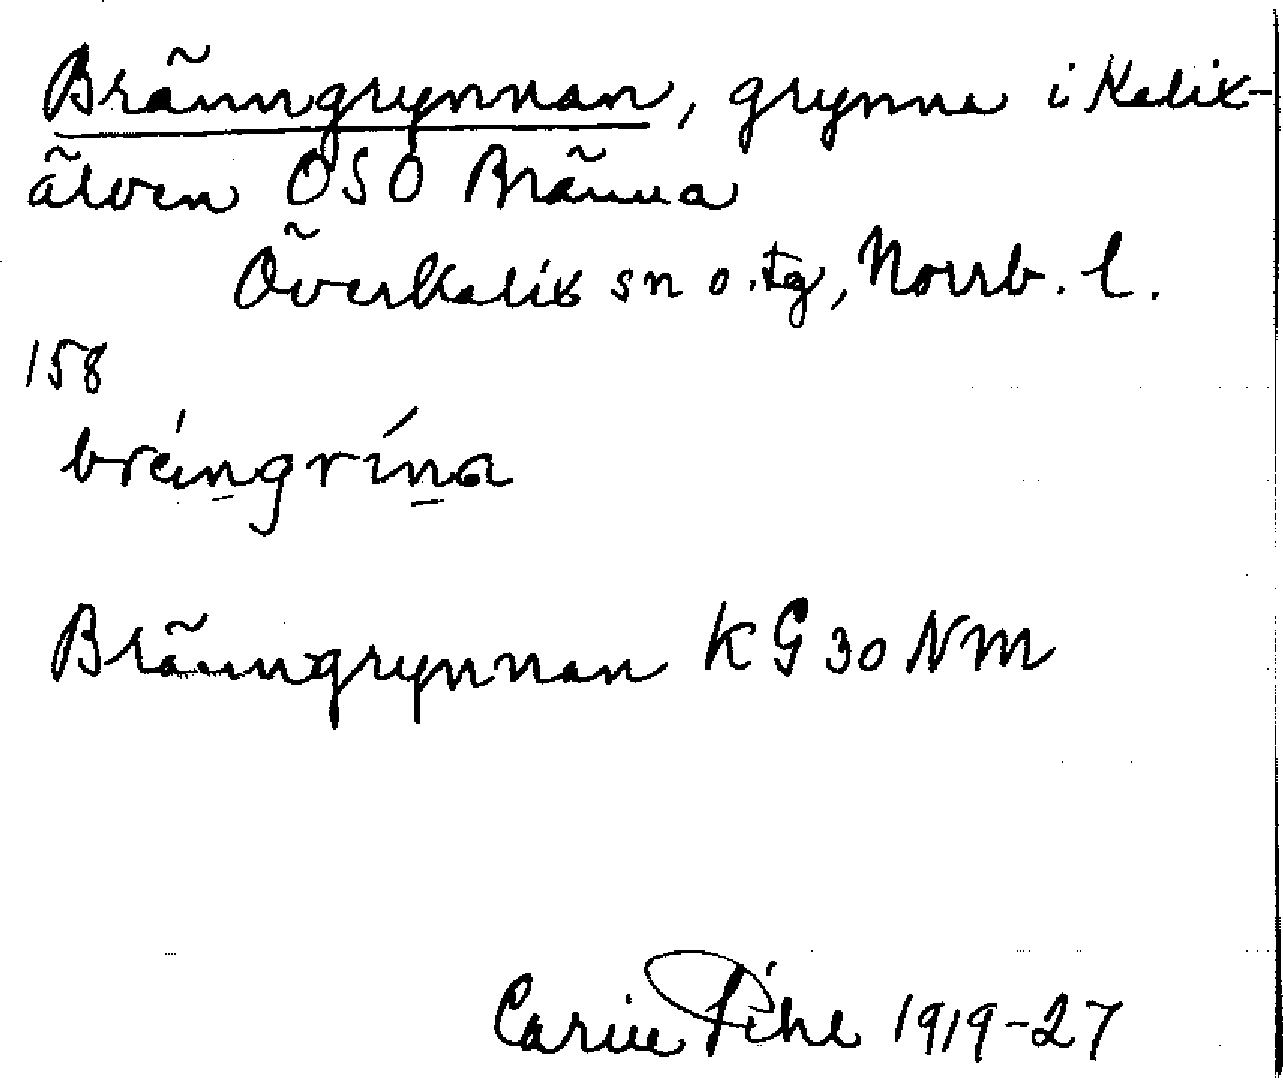 Bränngrynnan, grynna i Kalix-
älven OSO Bränna
Överkalix sn o. tg, Norrb. l.
158
bréingrína
Bränngrynnan KG 30 NM
Carin Pihl 1919-27